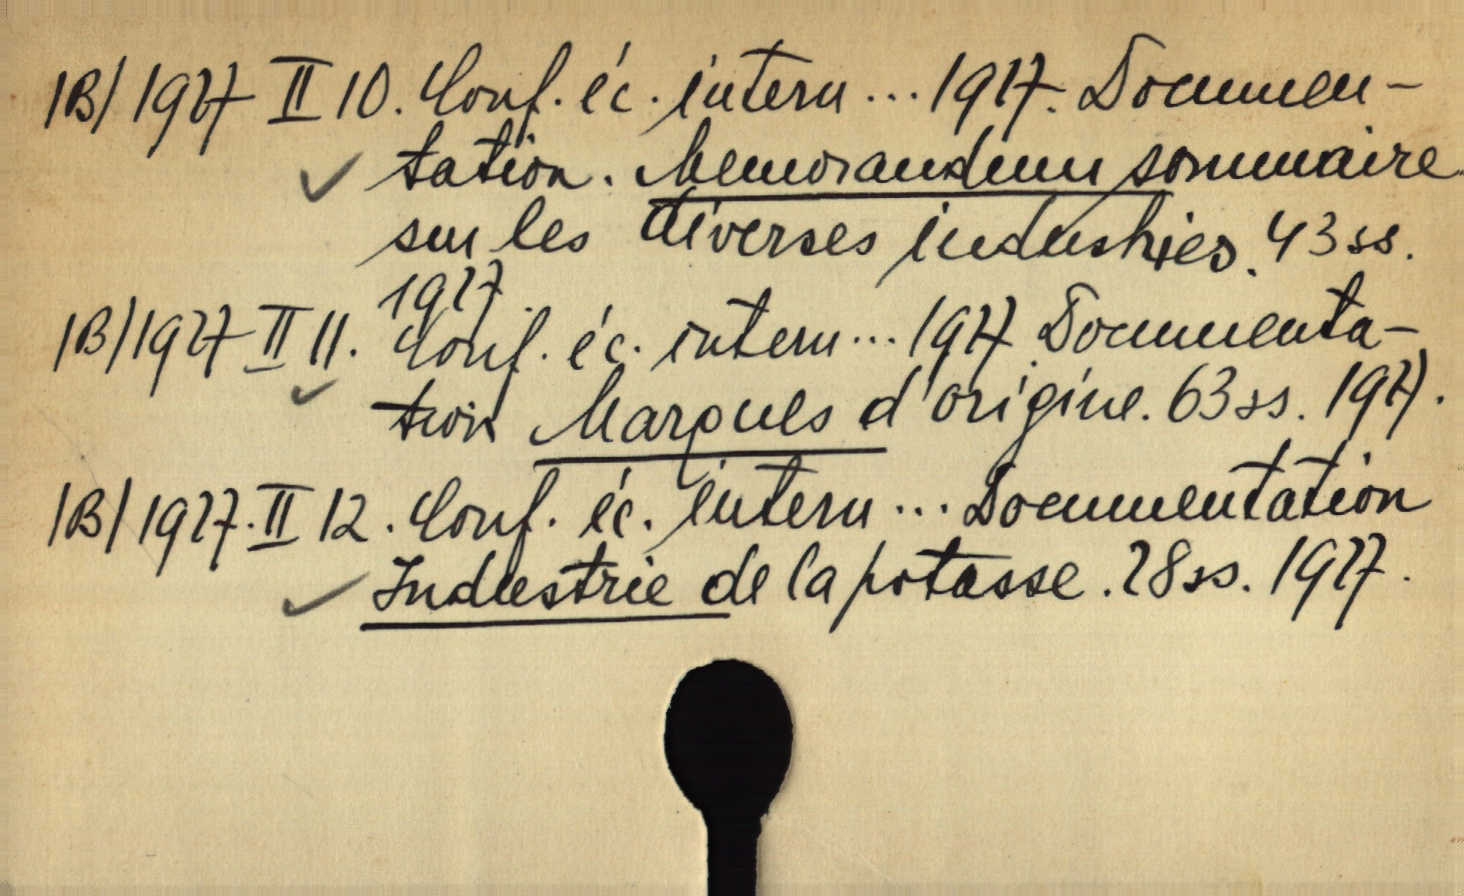 IB/1927 II 10. Conf. éc. intern... 1927. Documen-
tation. Memorandum sommaire
sur les diverses industries. 43 ss.
1927.
IB/1927 II 11. Conf. éc. intern... 1927 Documenta-
tion Marques d'origine. 63 ss. 1927.
IB/1927. II 12. Conf. éc. intern... Documentation
Industrie de la potasse. 28 ss. 1927.